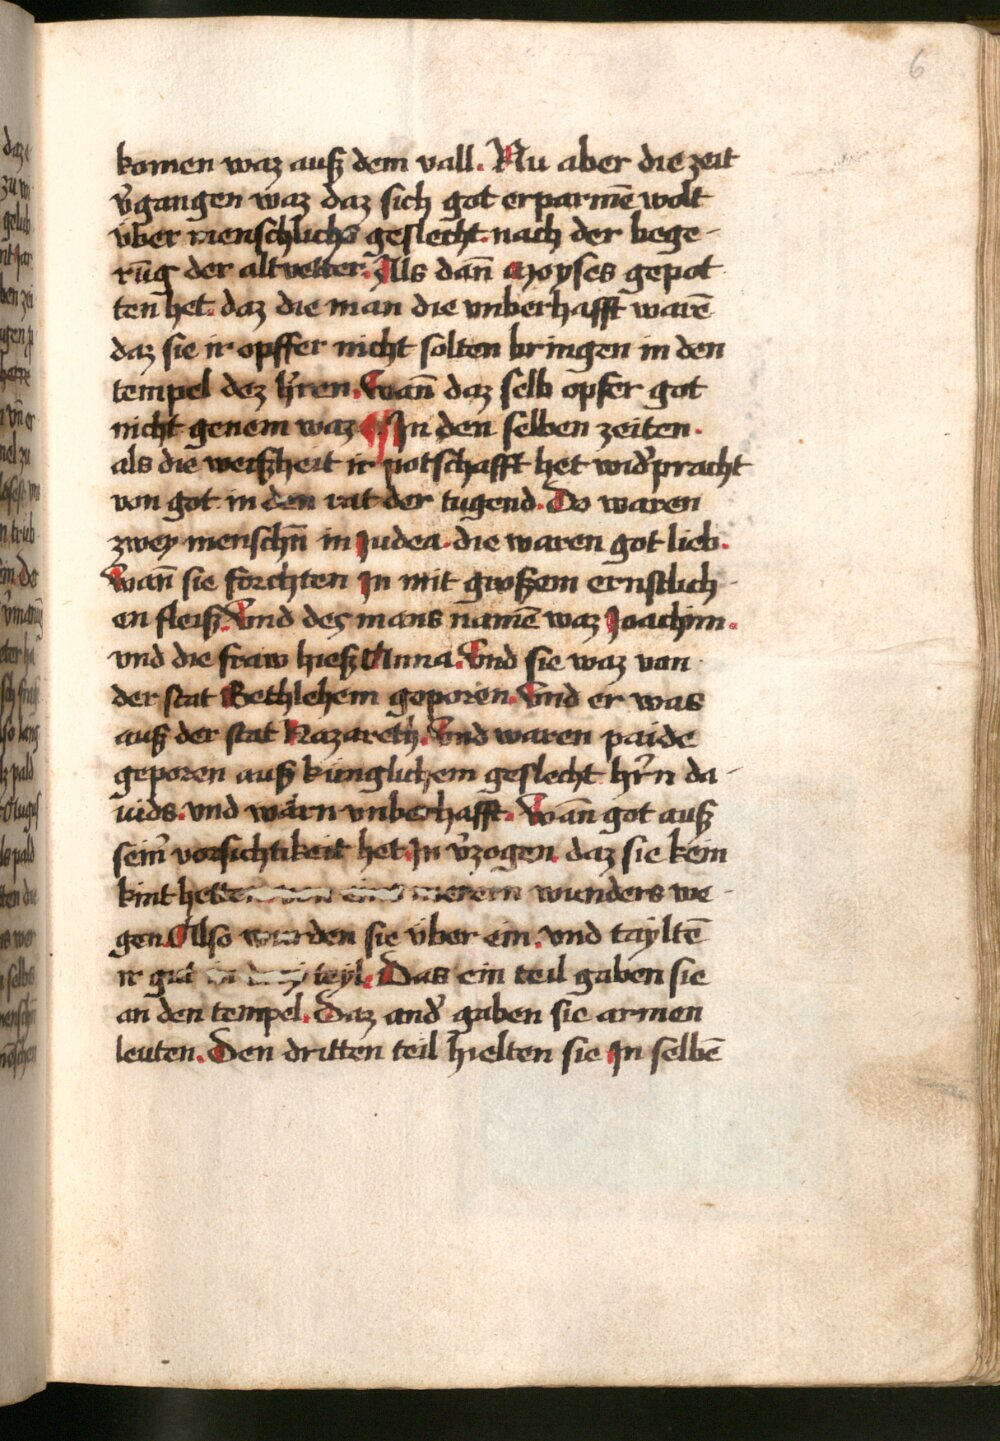 6
komen waz auß dem vall. Nu aber die zeit
v̉gangen waz daz sich got erparmē wolt
über menschlichs geslecht. nach der bege-
rūg der altvetter. Als dan̄ Moyses gepot
ten het. daz die man die vnberhafft warē
daz sie ir opffer nicht solten bringen in den
tempel dez h̉ren. Wan̄ daz selb opfer got
nicht genem waz ¶ In den selben zeiten.
als die weißheit ir potschafft het wid̉pracht
von got in den rat der tugend. Do waren
zwey menschn̄ in Judea. die waren got lieb.
Wan̄ sie forchten In mit großem ernstlich-
en fleiß. Vnd des mans namē waz Joachim.
vnd die fraw hieß Anna. Vnd sie waz von
der stat Bethlehem geporen. Vnd er was
auß der stat Nazareth. Vnd waren paide
geporen auß künglichem geslecht hr̉n da-
uids. vnd warn vnberhafft. Wan̄ got auß
sein̉ vorsichtikeit het In v̉zogen. daz sie kein
kint hetten von eins merern wunders we-
gen. Also wurden sie über ein. vnd tayltē
ir gut in drey teyl. Das ein teil gaben sie
an den tempel. Daz and̉ gaben sie armen
leuten. Den dritten teil hielten sie In selbē